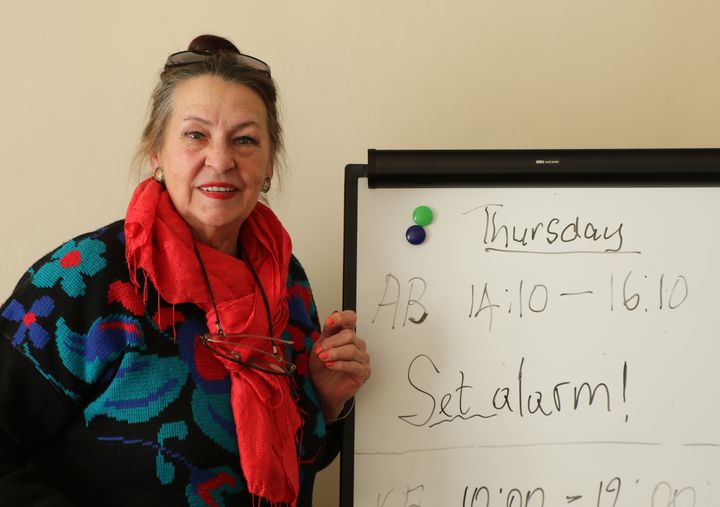 deli
Thursday
AB 14:10 – 16:10
Set alarm!
10:00 - 12:00